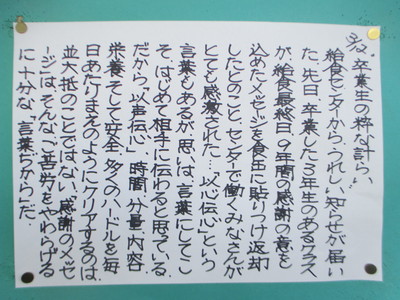 3/12 "卒業生の粋な計らい"
給食センターから、うれしい知らせが届い
た。先日、卒業した3年生のあるクラス
が、給食最終日、9年間の感謝の意を
込めたメッセージを食缶に貼りつけ返却
したとのこと。センターで働くみなさんが
とても感激された…。"以心伝心"という
言葉もあるが、思いは、言葉にしてこ
そ、はじめて相手に伝わると思っている。
だから、"以声伝心"。時間、分量、内容、
栄養、そして安全。多くのハードルを毎
日あたりまえのようにクリアするのは、
並大抵のことではない。"感謝のメッセ
ージ"は、そんなご苦労をやわらげる
に十分な、"言葉ぢから"だ。